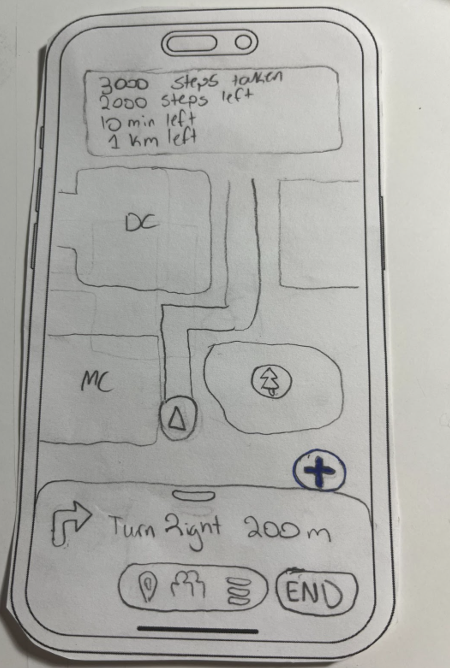 3000 steps taken
2000 steps left
10 min left
1 km left
DC
MC
Turn Right 200m
END